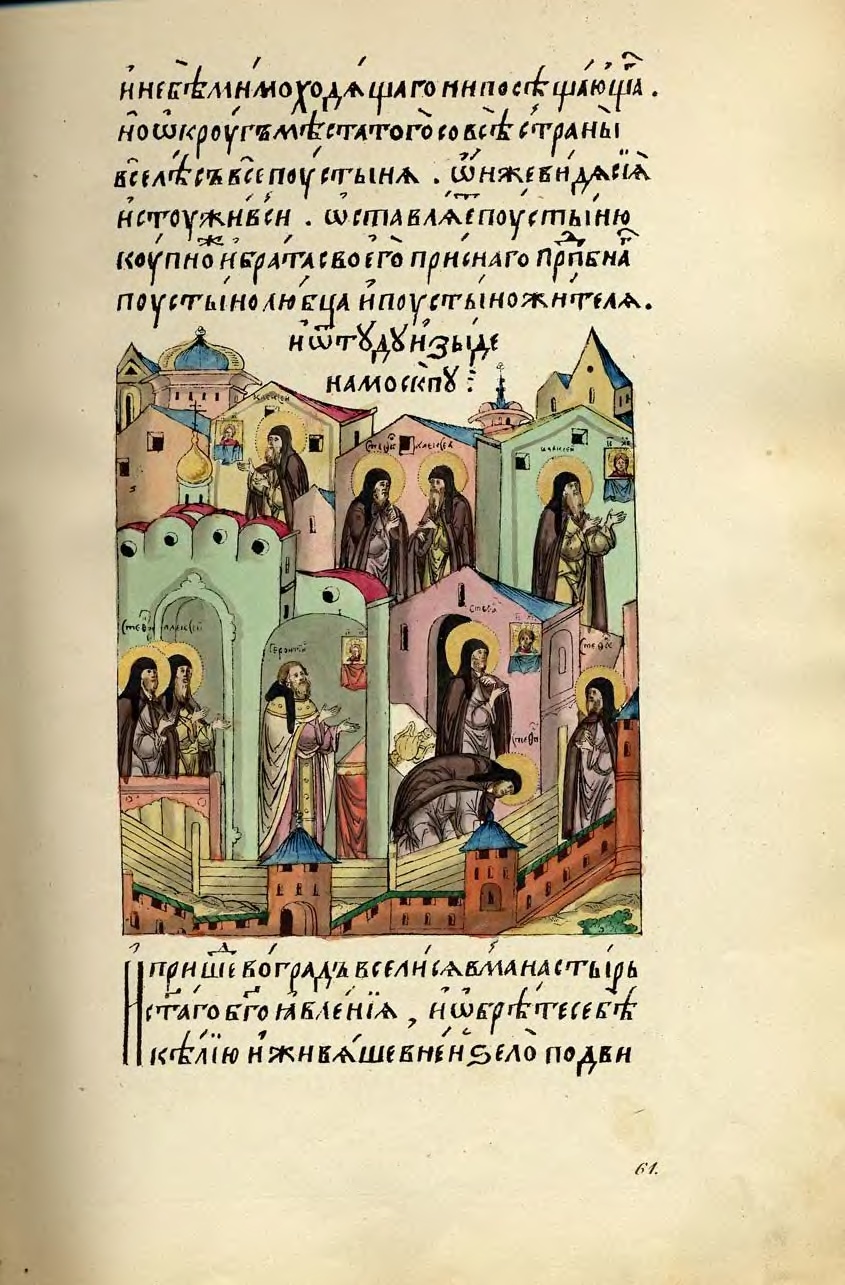 и҆ не бѣ мимоходѧщаго ни посѣщающа .
но ѿкроугъ мѣста того со всѣ страны
все лѣсъ все поустынѧ . ѿнже видѧ сїѧ
и стоуживси . ѡставлѧе поустыню
коупно и брата своего приснаго прпбна
поустынолюбца и поустыножителѧ .
и ѿтꙋдꙋ изыде
на москвꙋ :
алексей
Стеѳа
алексей
Стефа алексей
Геронтий
Стефа
Стефа
Стефа
И прише во градъ вселисѧ в манастырь
стаго бгоѩвленїѧ , и ѡбрѣте себѣ
кѣлїю и живѧше в ней ѕело подви
61.